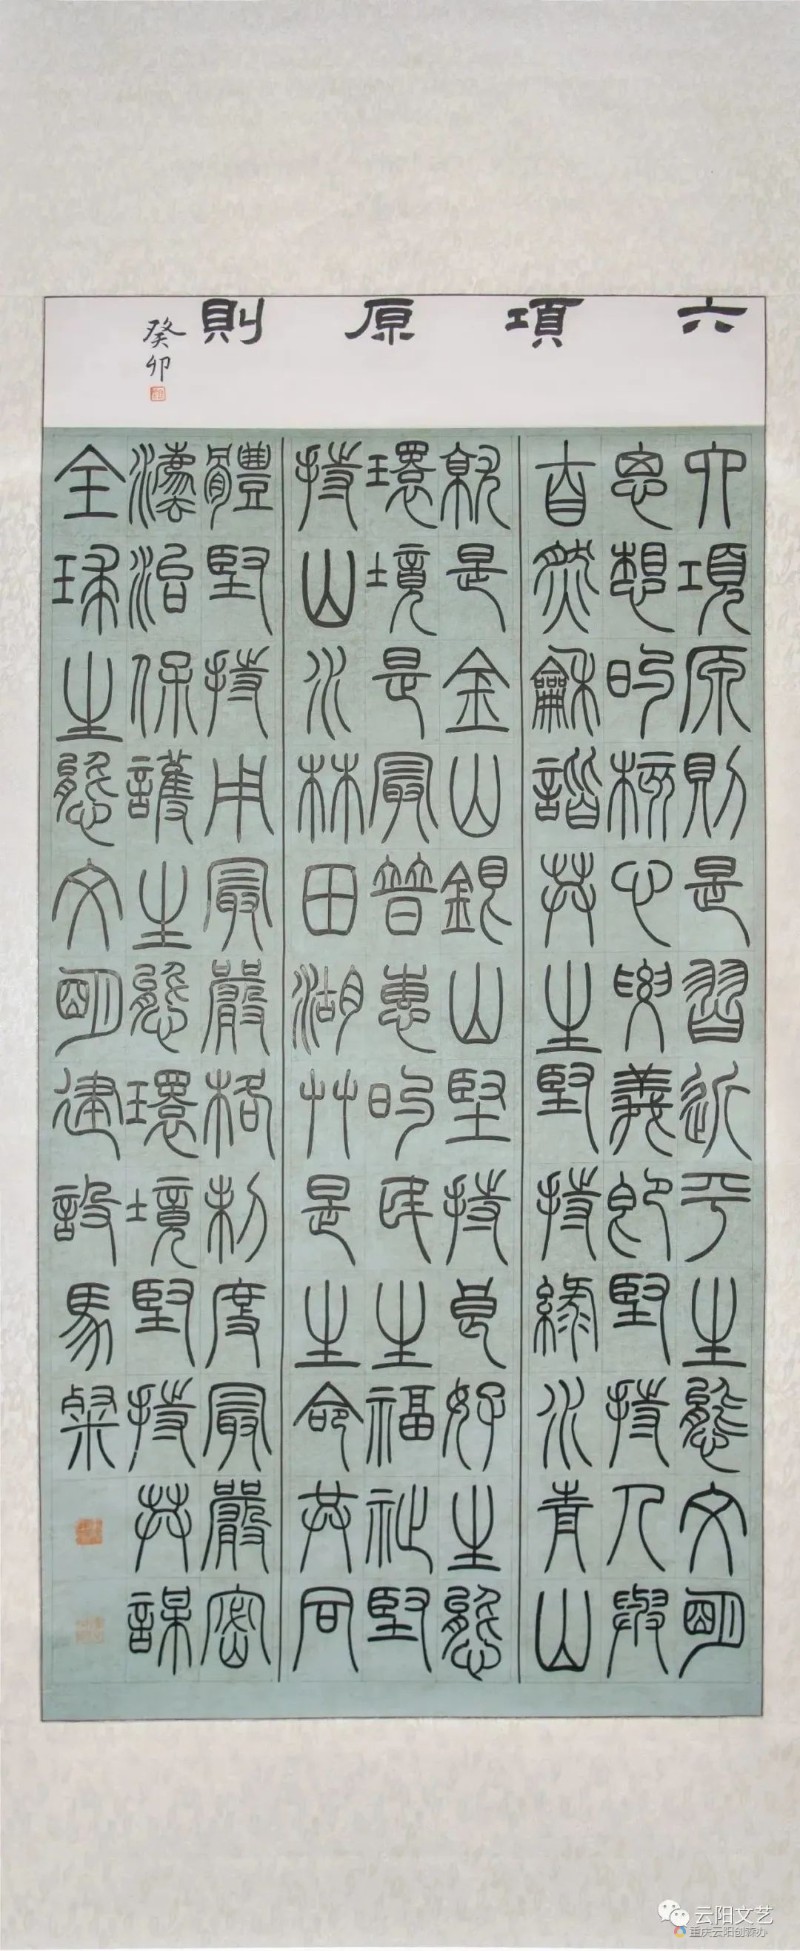 六項原則
癸卯
六項原則是習近平生態文明
思想的核心要義即堅持人與
自然龢諧共生堅持綠水青山
就是金山銀山堅持良好生態
環境是最普惠的民生福祉堅
持山水林田湖艸是生命共同
體堅持用最嚴格制度最嚴密
灋治保護生態環境堅持共謀
全球生態文明建設馬粲
云阳文艺
重庆云阳创森办